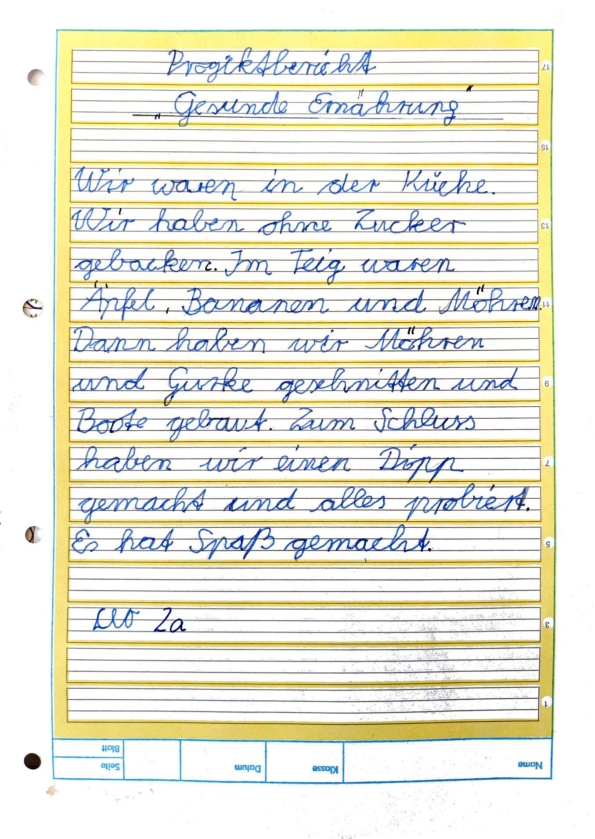 Progiktbericht
„Gesunde Ernährung"
Wir waren in der Küche.
Wir haben ohne Zucker
gebacken. Im Teig waren
Äpfel, Bananen und Möhren.
Dann haben wir Möhren
und Gurke geschnitten und
Boote gebaut. Zum Schluss
haben wir einen Dipp
gemacht und alles probiert.
Es hat Spaß gemacht.
2a
17
15
13
11
9
7
5
3
1
Name
Klasse
Datum
Seite
Blatt